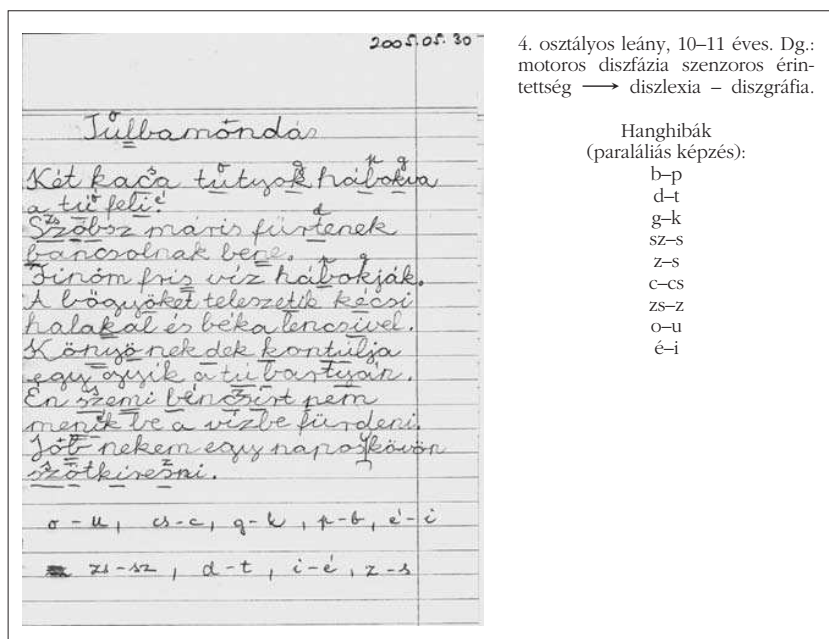 2005.05.30
Tűlbamöndás
Két kaca tűtyog hábokva
a tú feli.
Szöbsz máris fürtenek
báncsolnak bene.
Finóm fris víz hábokják.
A bögyöket teleszetik kécsi
halakal és béka lencsivel.
Könyö nekdek kontúlja
egy gyik a tú bartyán.
Én szemi béncsirt nem
menik be a vízbe fürdeni.
Jöb nekem egy napos kövön
szötkiresni.
o – u, cs – c, g – k, p – b, é – i
zs – sz, d – t, i – é, z – s
4. osztályos leány, 10–11 éves. Dg.:
motoros diszfázia szenzoros érin-
tettség ⟶ diszlexia – diszgráfia.
Hanghibák
(paraláliás képzés):
b–p
d–t
g–k
sz–s
z–s
c–cs
zs–z
o–u
é–i